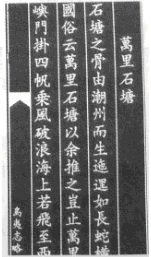 萬里石塘
石塘之骨由潮州而生迤邐如長蛇橫
國俗云萬里石塘以余推之豈止萬里
嶼門掛四帆乘風破浪海上若飛至西
島夷志略